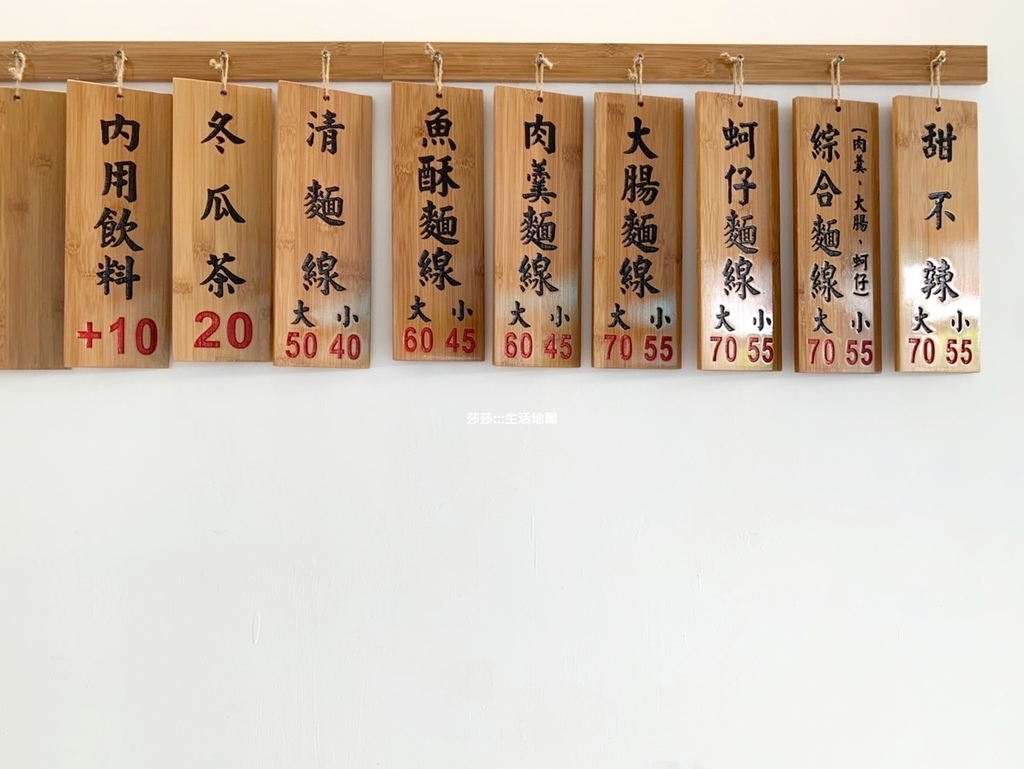 甜不辣
大 小
70 55
綜合麵線
(肉羹、大腸、蚵仔)
大 小
70 55
蚵仔麵線
大 小
70 55
大腸麵線
大 小
70 55
肉羹麵線
大 小
60 45
魚酥麵線
大 小
60 45
清麵線
大 小
50 40
冬瓜茶
20
內用飲料
+10
莎莎:::生活地圖